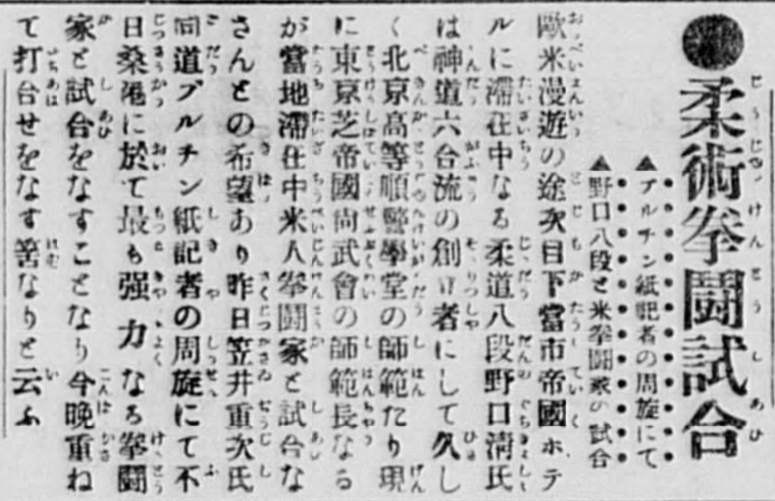 ●柔術拳闘試合
▲ブルチン紙記者の周旋にて
▲野口八段と米拳闘家の試合
歐米漫遊の途次目下當市帝國ホテ
ルに滯在中なる柔道八段野口淸氏
は神道六合流の創立者にして久し
く北京高等順警學堂の師範たり現
に東京芝帝國尙武會の師範長なる
が當地滯在中米人拳闘家と試合な
さんとの希望あり昨日笠井重次氏
同道ブルチン紙記者の周旋にて不
日桑港に於て最も强力なる拳闘
家と試合をなすことなり今晩重ね
て打合せをなす筈なりと云ふ